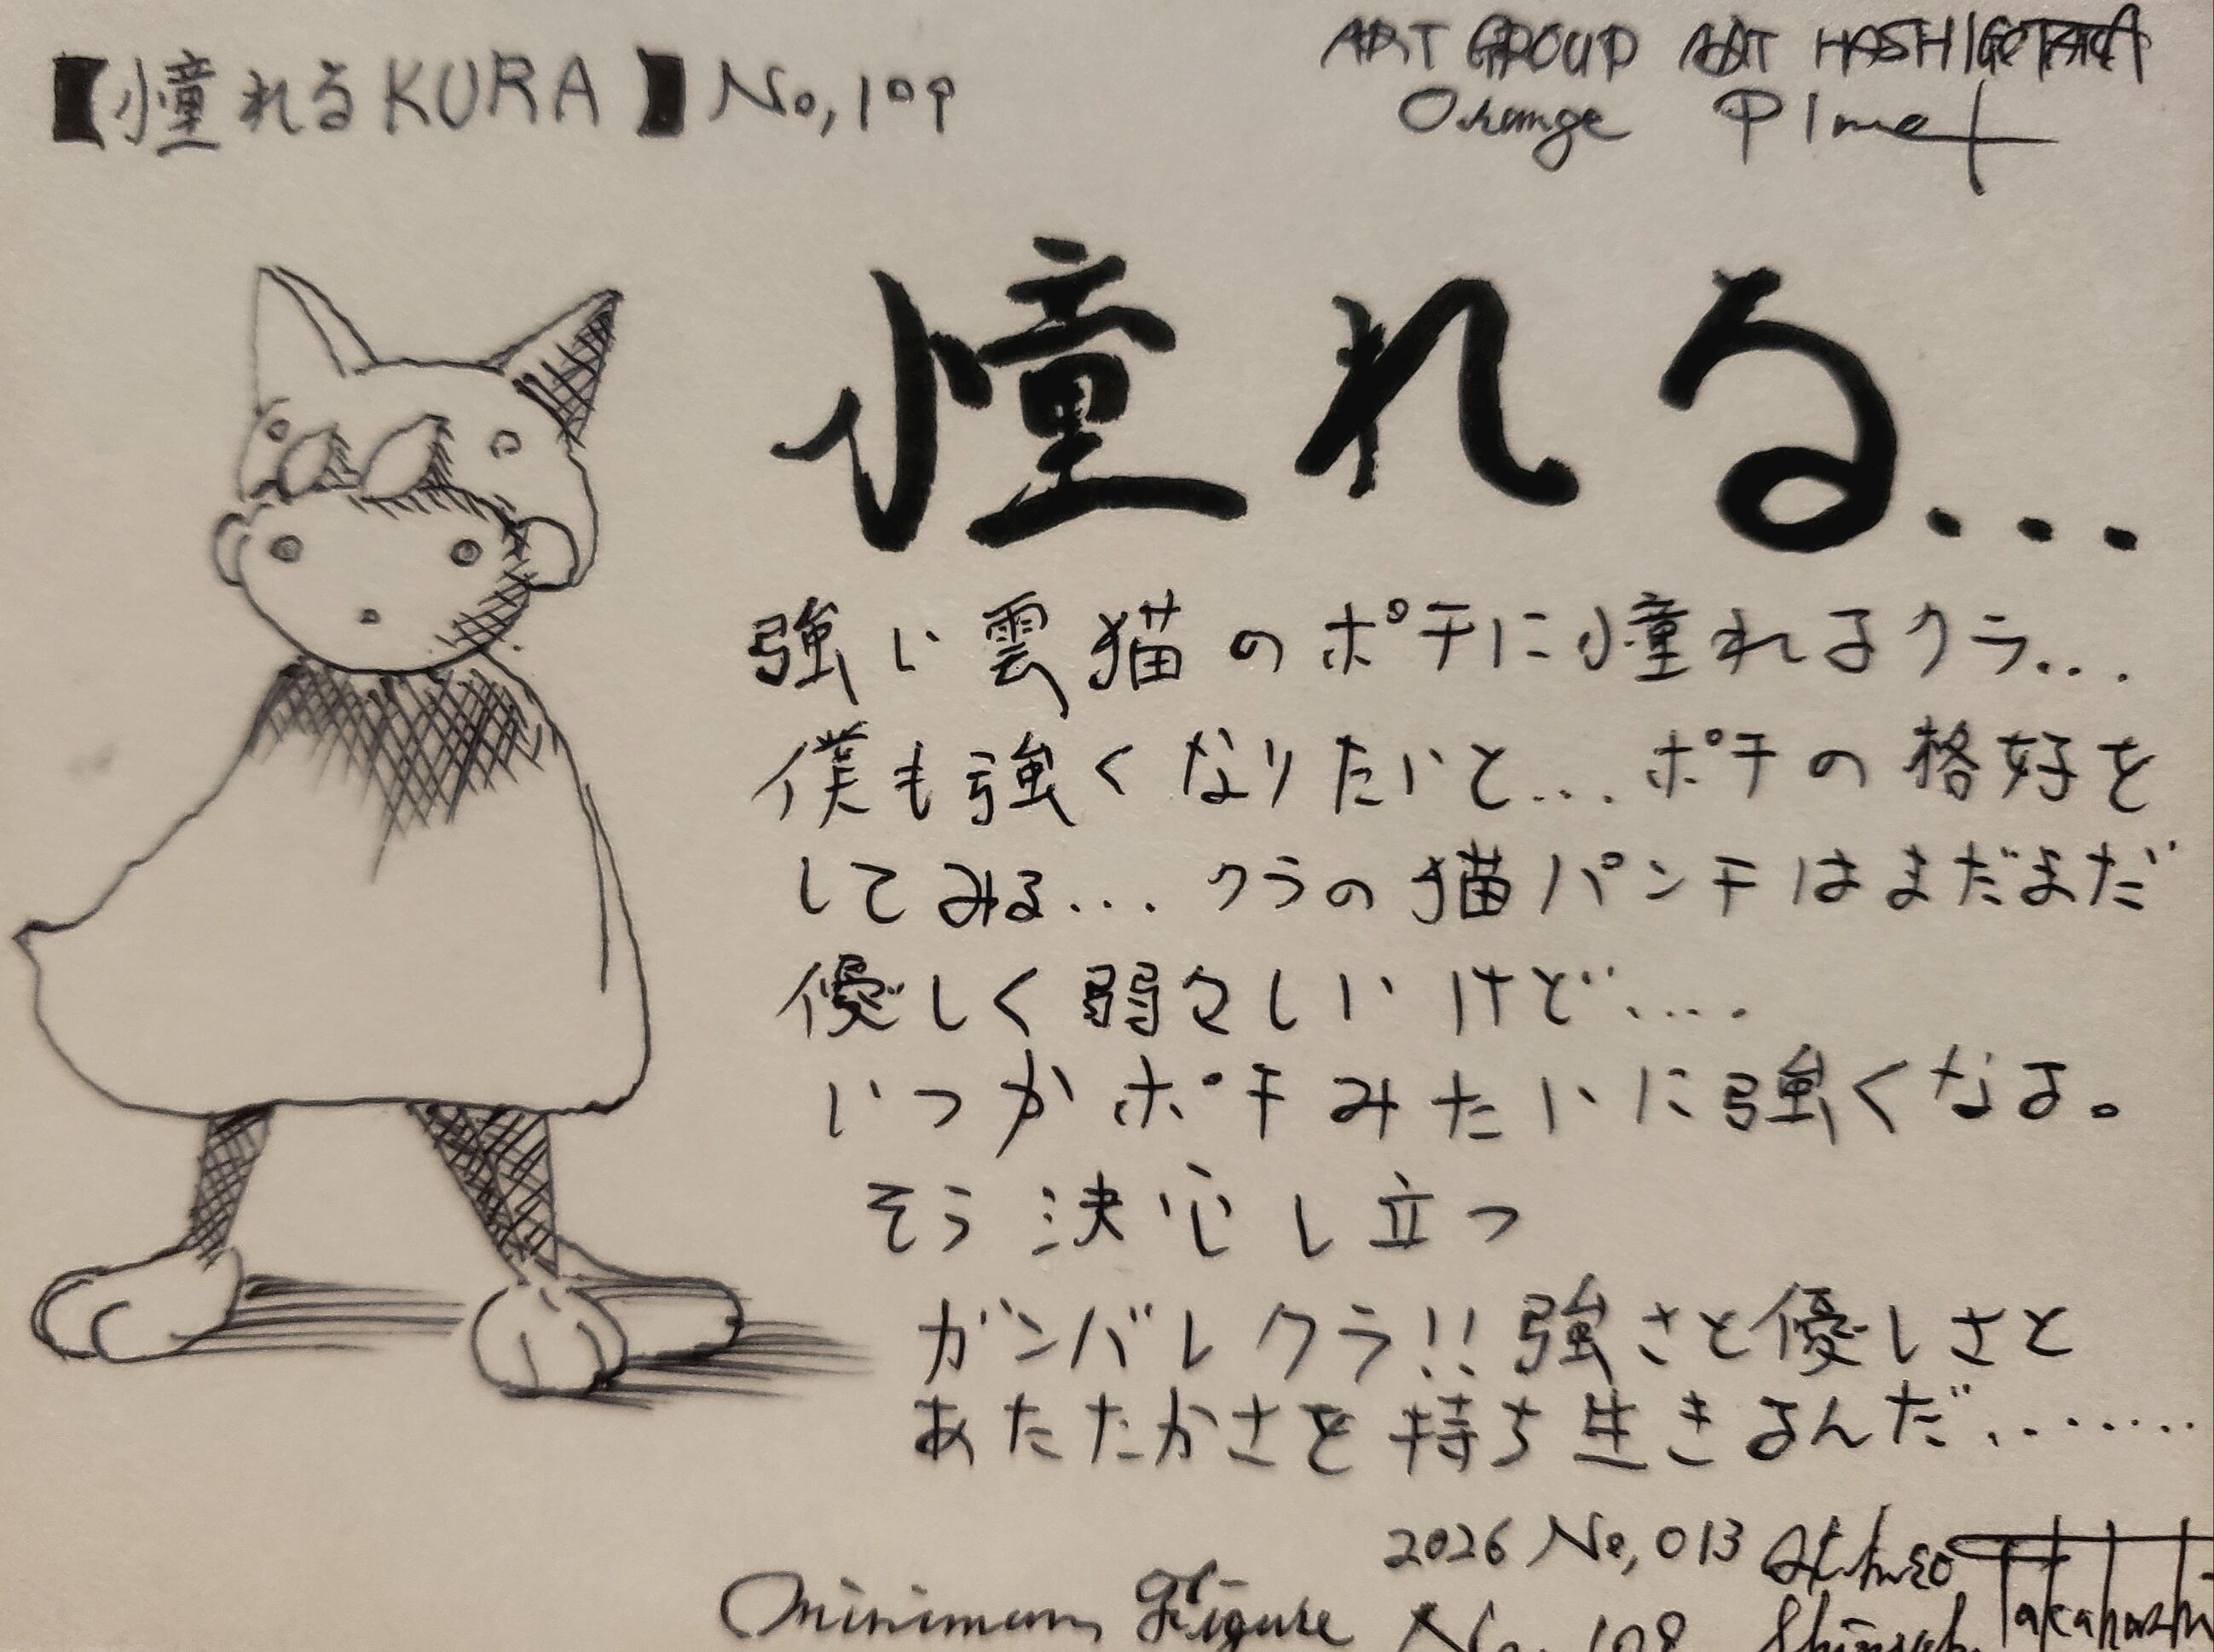 【憧れるKURA】No,109
ART GROUP ART HASHIGOTAKA
Orange Planet
憧れる...
強い雲猫のポチに憧れるクラ...
僕も強くなりたいと...ポチの格好を
してみる...クラの猫パンチはまだまだ
優しく弱々しいけど....
いつかポチみたいに強くなる。
そう決心し立つ
ガンバレクラ!!強さと優しさと
あたたかさを持ち生きるんだ........
2026 No,013 Takahashi
Minimum Figure No. 108